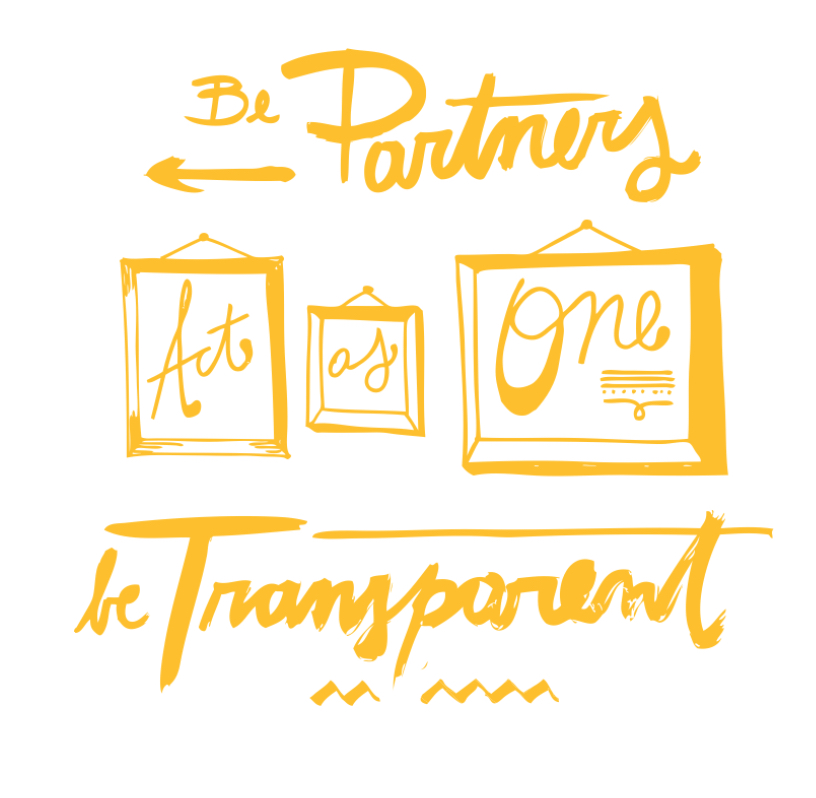 Be Partners
Act as One
be Transparent